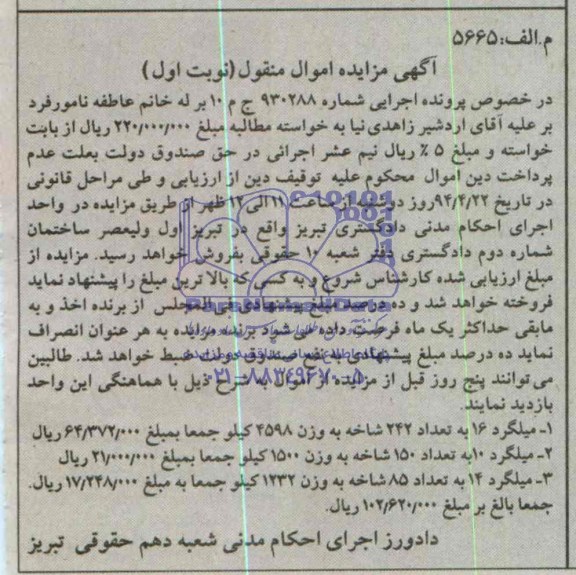 م.الف:۵۶۶۵
آگهی مزایده اموال منقول(نوبت اول)
در خصوص پرونده اجرایی شماره ۹۳۰۲۸۸ ج م ۱۰ بر له خانم عاطفه نامورفرد
بر علیه آقای اردشیر زاهدی نیا به خواسته مطالبه مبلغ ۲۲۰/۰۰۰/۰۰۰ ریال از بابت
خواسته و مبلغ ۵ ٪ ریال نیم عشر اجرائی در حق صندوق دولت بعلت عدم
پرداخت دین اموال محکوم علیه توقیف دین از ارزیابی و طی مراحل قانونی
در تاریخ ۹۴/۴/۲۲روز دوشنبه از ساعت ۱۱ الی ۱۲ ظهر از طریق مزایده در واحد
اجرای احکام مدنی دادگستری تبریز واقع در تبریز اول ولیعصر ساختمان
شماره دوم دادگستری دفتر شعبه ۱۰ حقوقی بفروش خواهد رسید. مزایده از
مبلغ ارزیابی شده کارشناس شروع و به کسی که بالاترین مبلغ را پیشنهاد نماید
فروخته خواهد شد و ده درصد مبلغ پیشنهادی فی المجلس از برنده اخذ و به
مابقی حداکثر یک ماه فرصت داده می شود برنده مزایده به هر عنوان انصراف
نماید ده درصد مبلغ پیشنهادی به نفع صندوق دولت ضبط خواهد شد. طالبین
می توانند پنج روز قبل از مزایده از اموال به شرح ذیل با هماهنگی این واحد
بازدید نمایند.
۱- میلگرد ۱۶ به تعداد ۲۴۲ شاخه به وزن ۴۵۹۸ کیلو جمعا بمبلغ ۶۴/۳۷۲/۰۰۰ ریال
۲- میلگرد ۱۰به تعداد ۱۵۰ شاخه به وزن ۱۵۰۰ کیلو جمعا بمبلغ ۲۱/۰۰۰/۰۰۰ ریال
۳- میلگرد ۱۴ به تعداد ۸۵ شاخه به وزن ۱۲۳۲ کیلو جمعا به مبلغ ۱۷/۲۴۸/۰۰۰ ریال.
جمعا بالغ بر مبلغ ۱۰۲/۶۲۰/۰۰۰ ریال.
دادورز اجرای احکام مدنی شعبه دهم حقوقی تبریز
۰۲۱-۸۸۳۴۹۶۷۰-۵